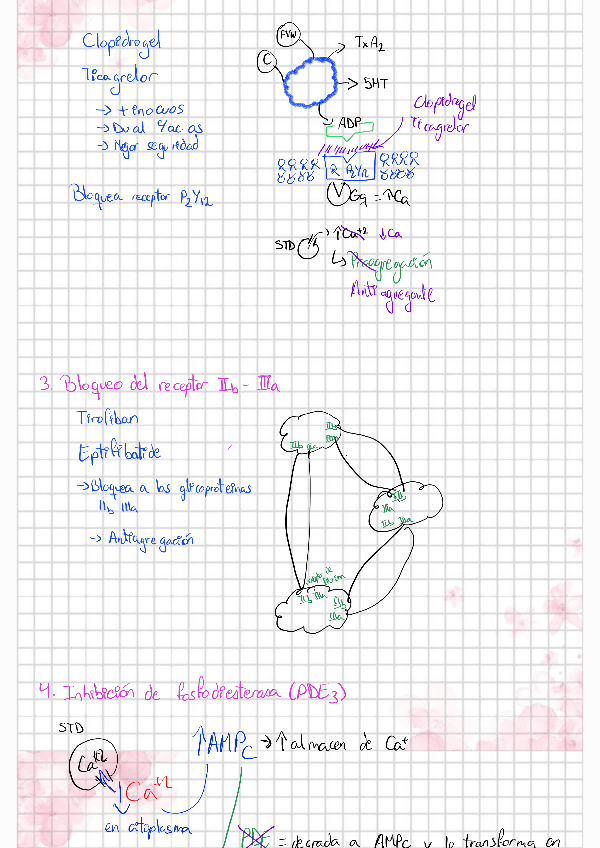 Clopidrogel
Ticagrelor
→ + inocuos
→ Dual Yac as
→ Mejor seguridad
Bloquea receptor P2Y12
FVW
C
TxA2
5HT
ADP
Clopidrogel
Ticagrelor
R P2Y12
Gq = ↑Ca
STD
↑Ca+2 ↓Ca
Proagregación
Antiagregante
3. Bloqueo del receptor IIb - IIIa
Tirofiban
Eptifibatide
→ Bloquea a las glicoproteinas
IIb IIIa
→ Antiagregación
IIb
IIIa
IIb
IIIa
IIb IIIa
IIb IIIa
IIb
IIIa
4. Inhibición de fosfodiesterasa (PDE3)
STD
Ca+2
↓Ca+2
en citoplasma
↑AMPC → ↑ almacen de Ca+
PDE = degrada a AMPc y lo transforma en